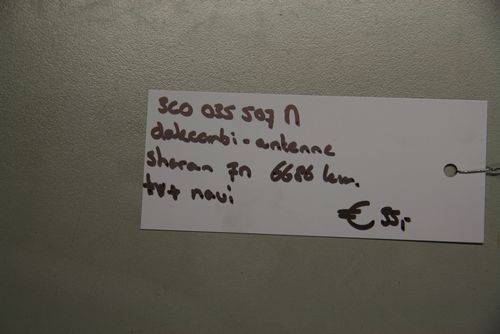 3C0 035 507 N
dakcombi-antenne
sharan 7n 6686 km.
tv+ navi
€ 35,-